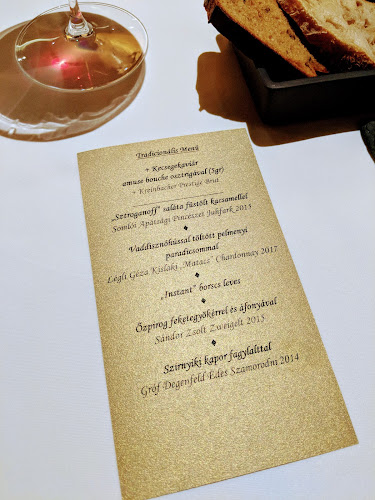 Tradicionális Menü
+ Kecsegekaviár
amuse bouche osztrigával (5gr)
+ Kreinbacher Prestige Brut
„Sztroganoff” saláta füstölt kacsamellel
Somlói Apátsági Pincészet Juhfark 2015
Vaddisznóhússal töltött pelmenyi
paradicsommal
Légli Géza Kislaki „Matacs” Chardonnay 2017
„Instant” borscs leves
Őzpirog feketegyökérrel és áfonyával
Sándor Zsolt Zweigelt 2015
Szirnyiki kapor fagylalttal
Gróf Degenfeld Édes Szamorodni 2014